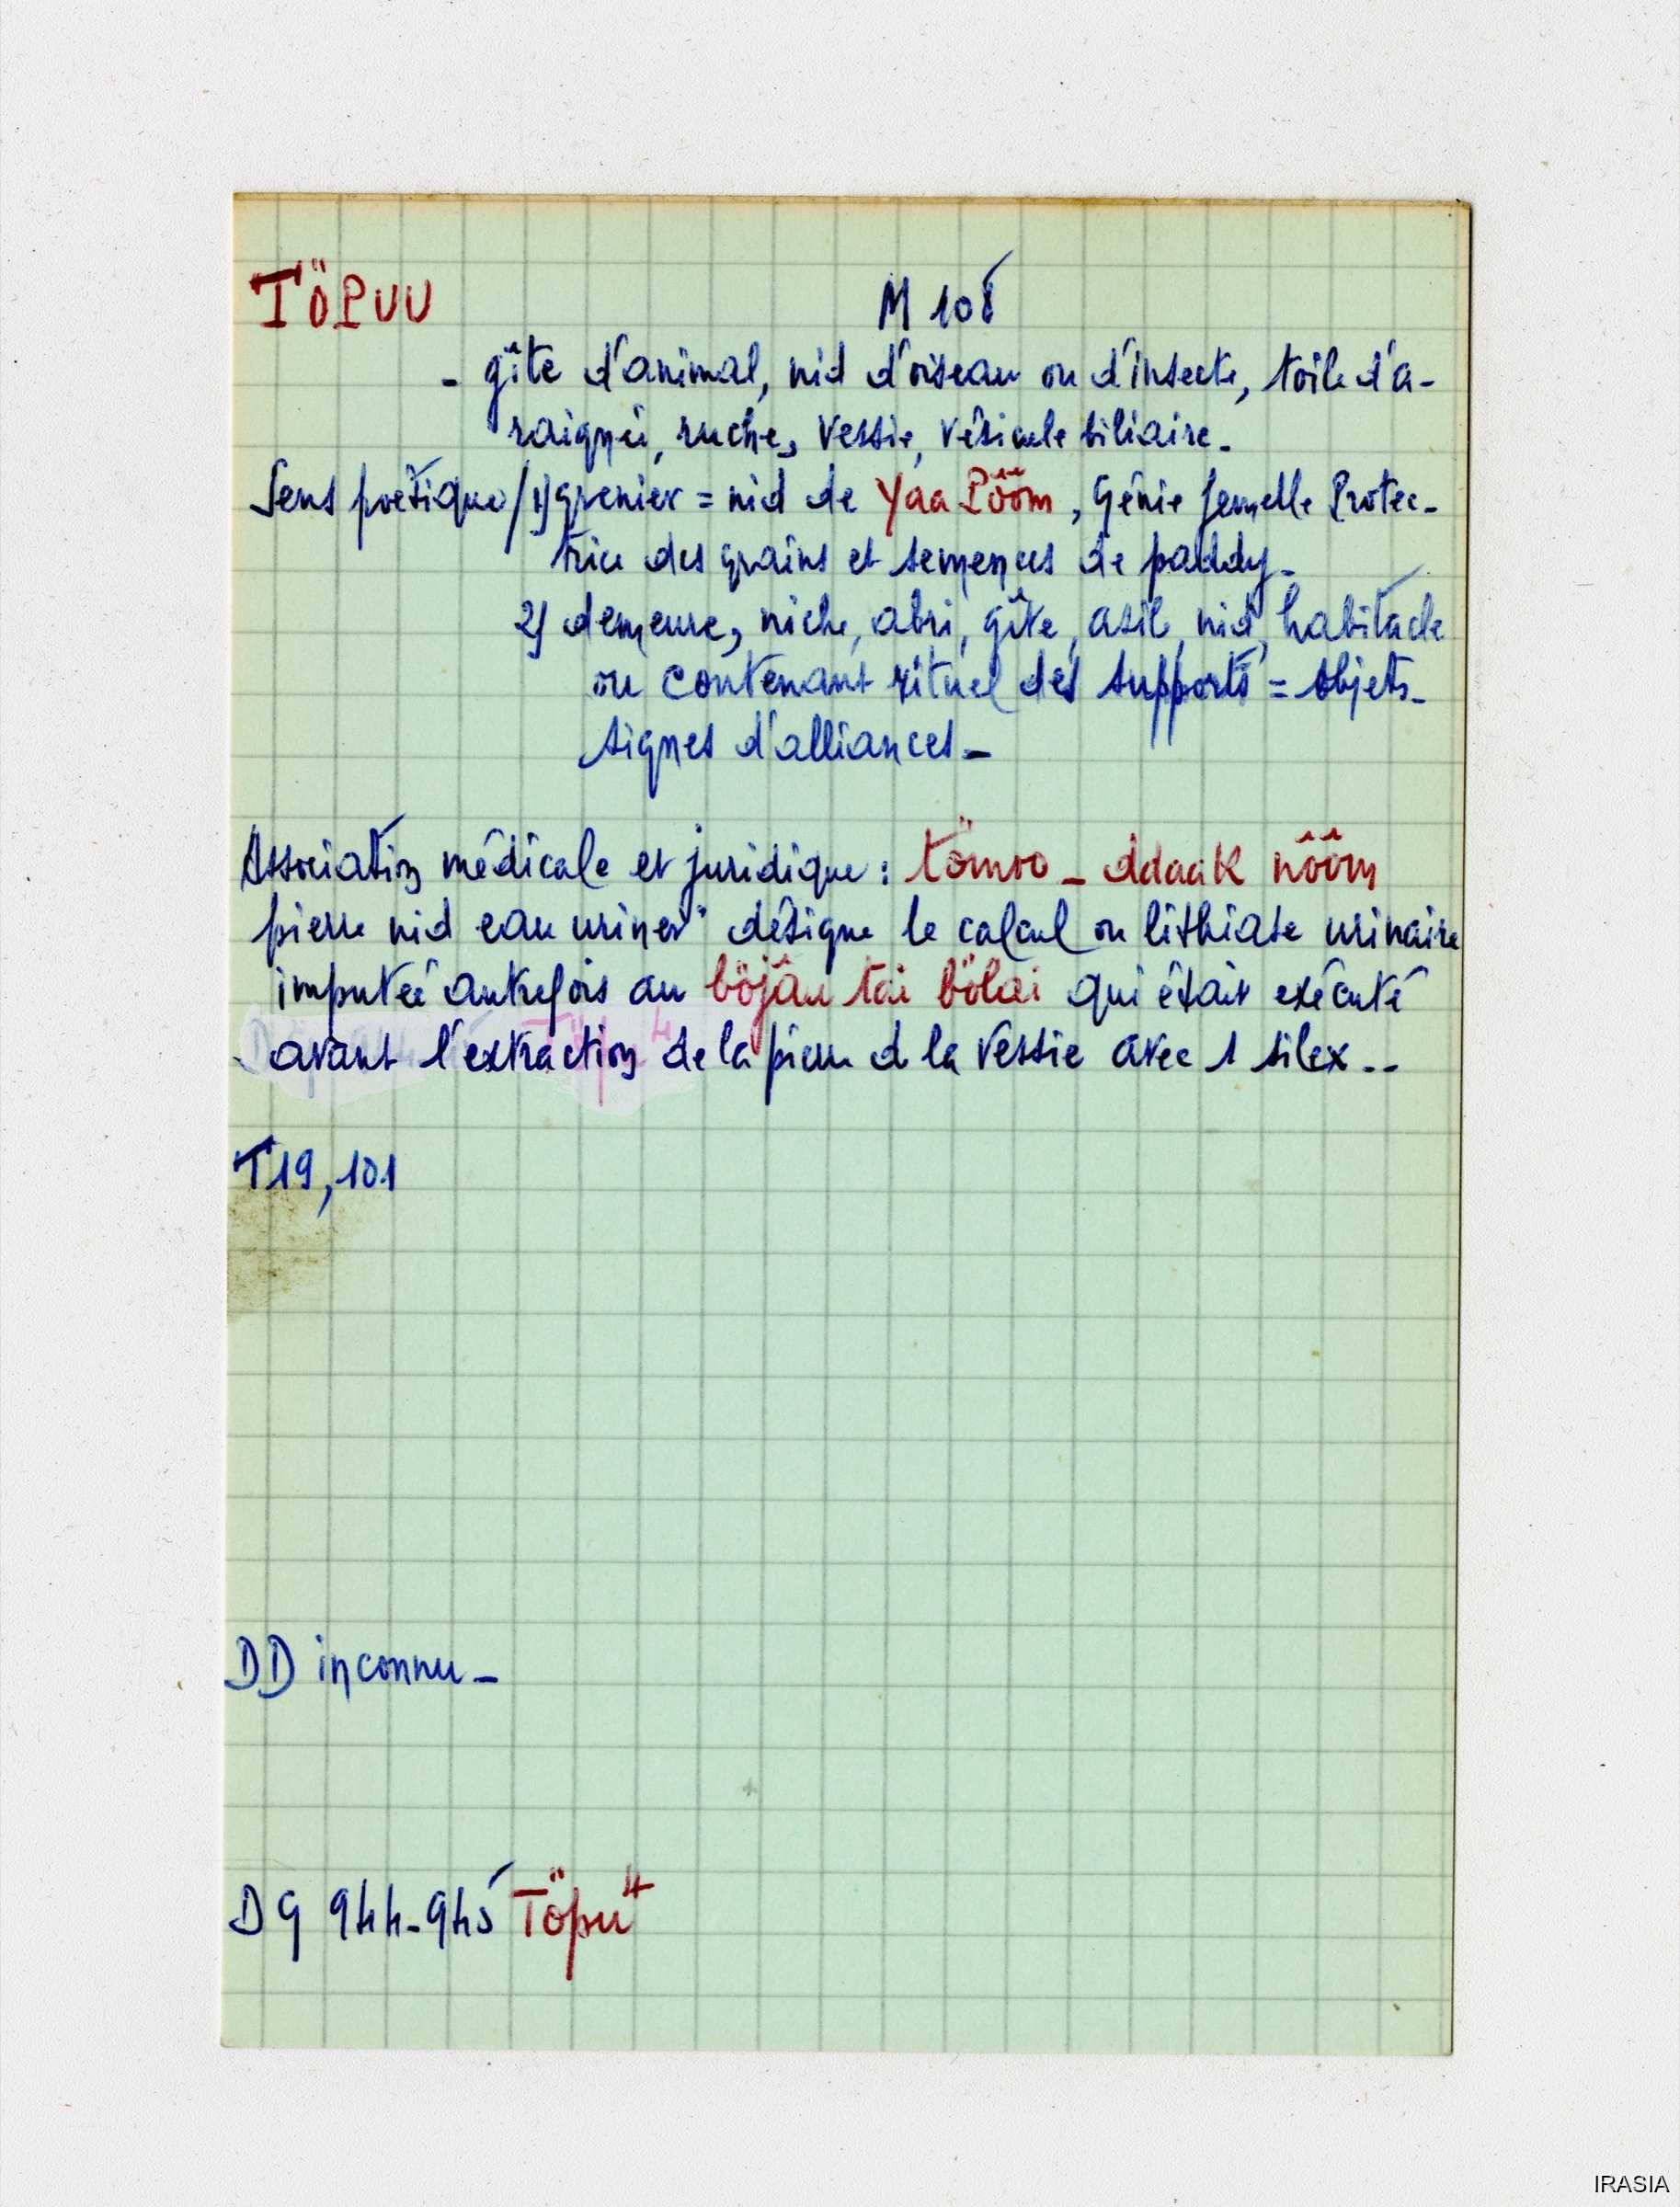 TÖPUU M 108
- gîte d'animal, nid d'oiseau ou d'insecte, toile d'a-
raignée, ruche, vessie, vésicule biliaire -
Sens poétique / 1) grenier = nid de Yaa Pôôm, Génie femelle Protec-
trice des grains et semences de paddy -
2) demeure, niche, abri, gîte, asile, nid, habitacle
ou contenant rituel des supports = objets -
signes d'alliances -
Association médicale et juridique : tömoo - ddaak nôôm
pierre nid eau uriner" désigne le calcul ou lithiase urinaire
imputée autrefois au böjâu tai bölai qui était exécuté
avant l'extraction de la pierre d la vessie avec 1 silex --
T19, 101
DD inconnu -
DG 944-945 Töpu
IRASIA